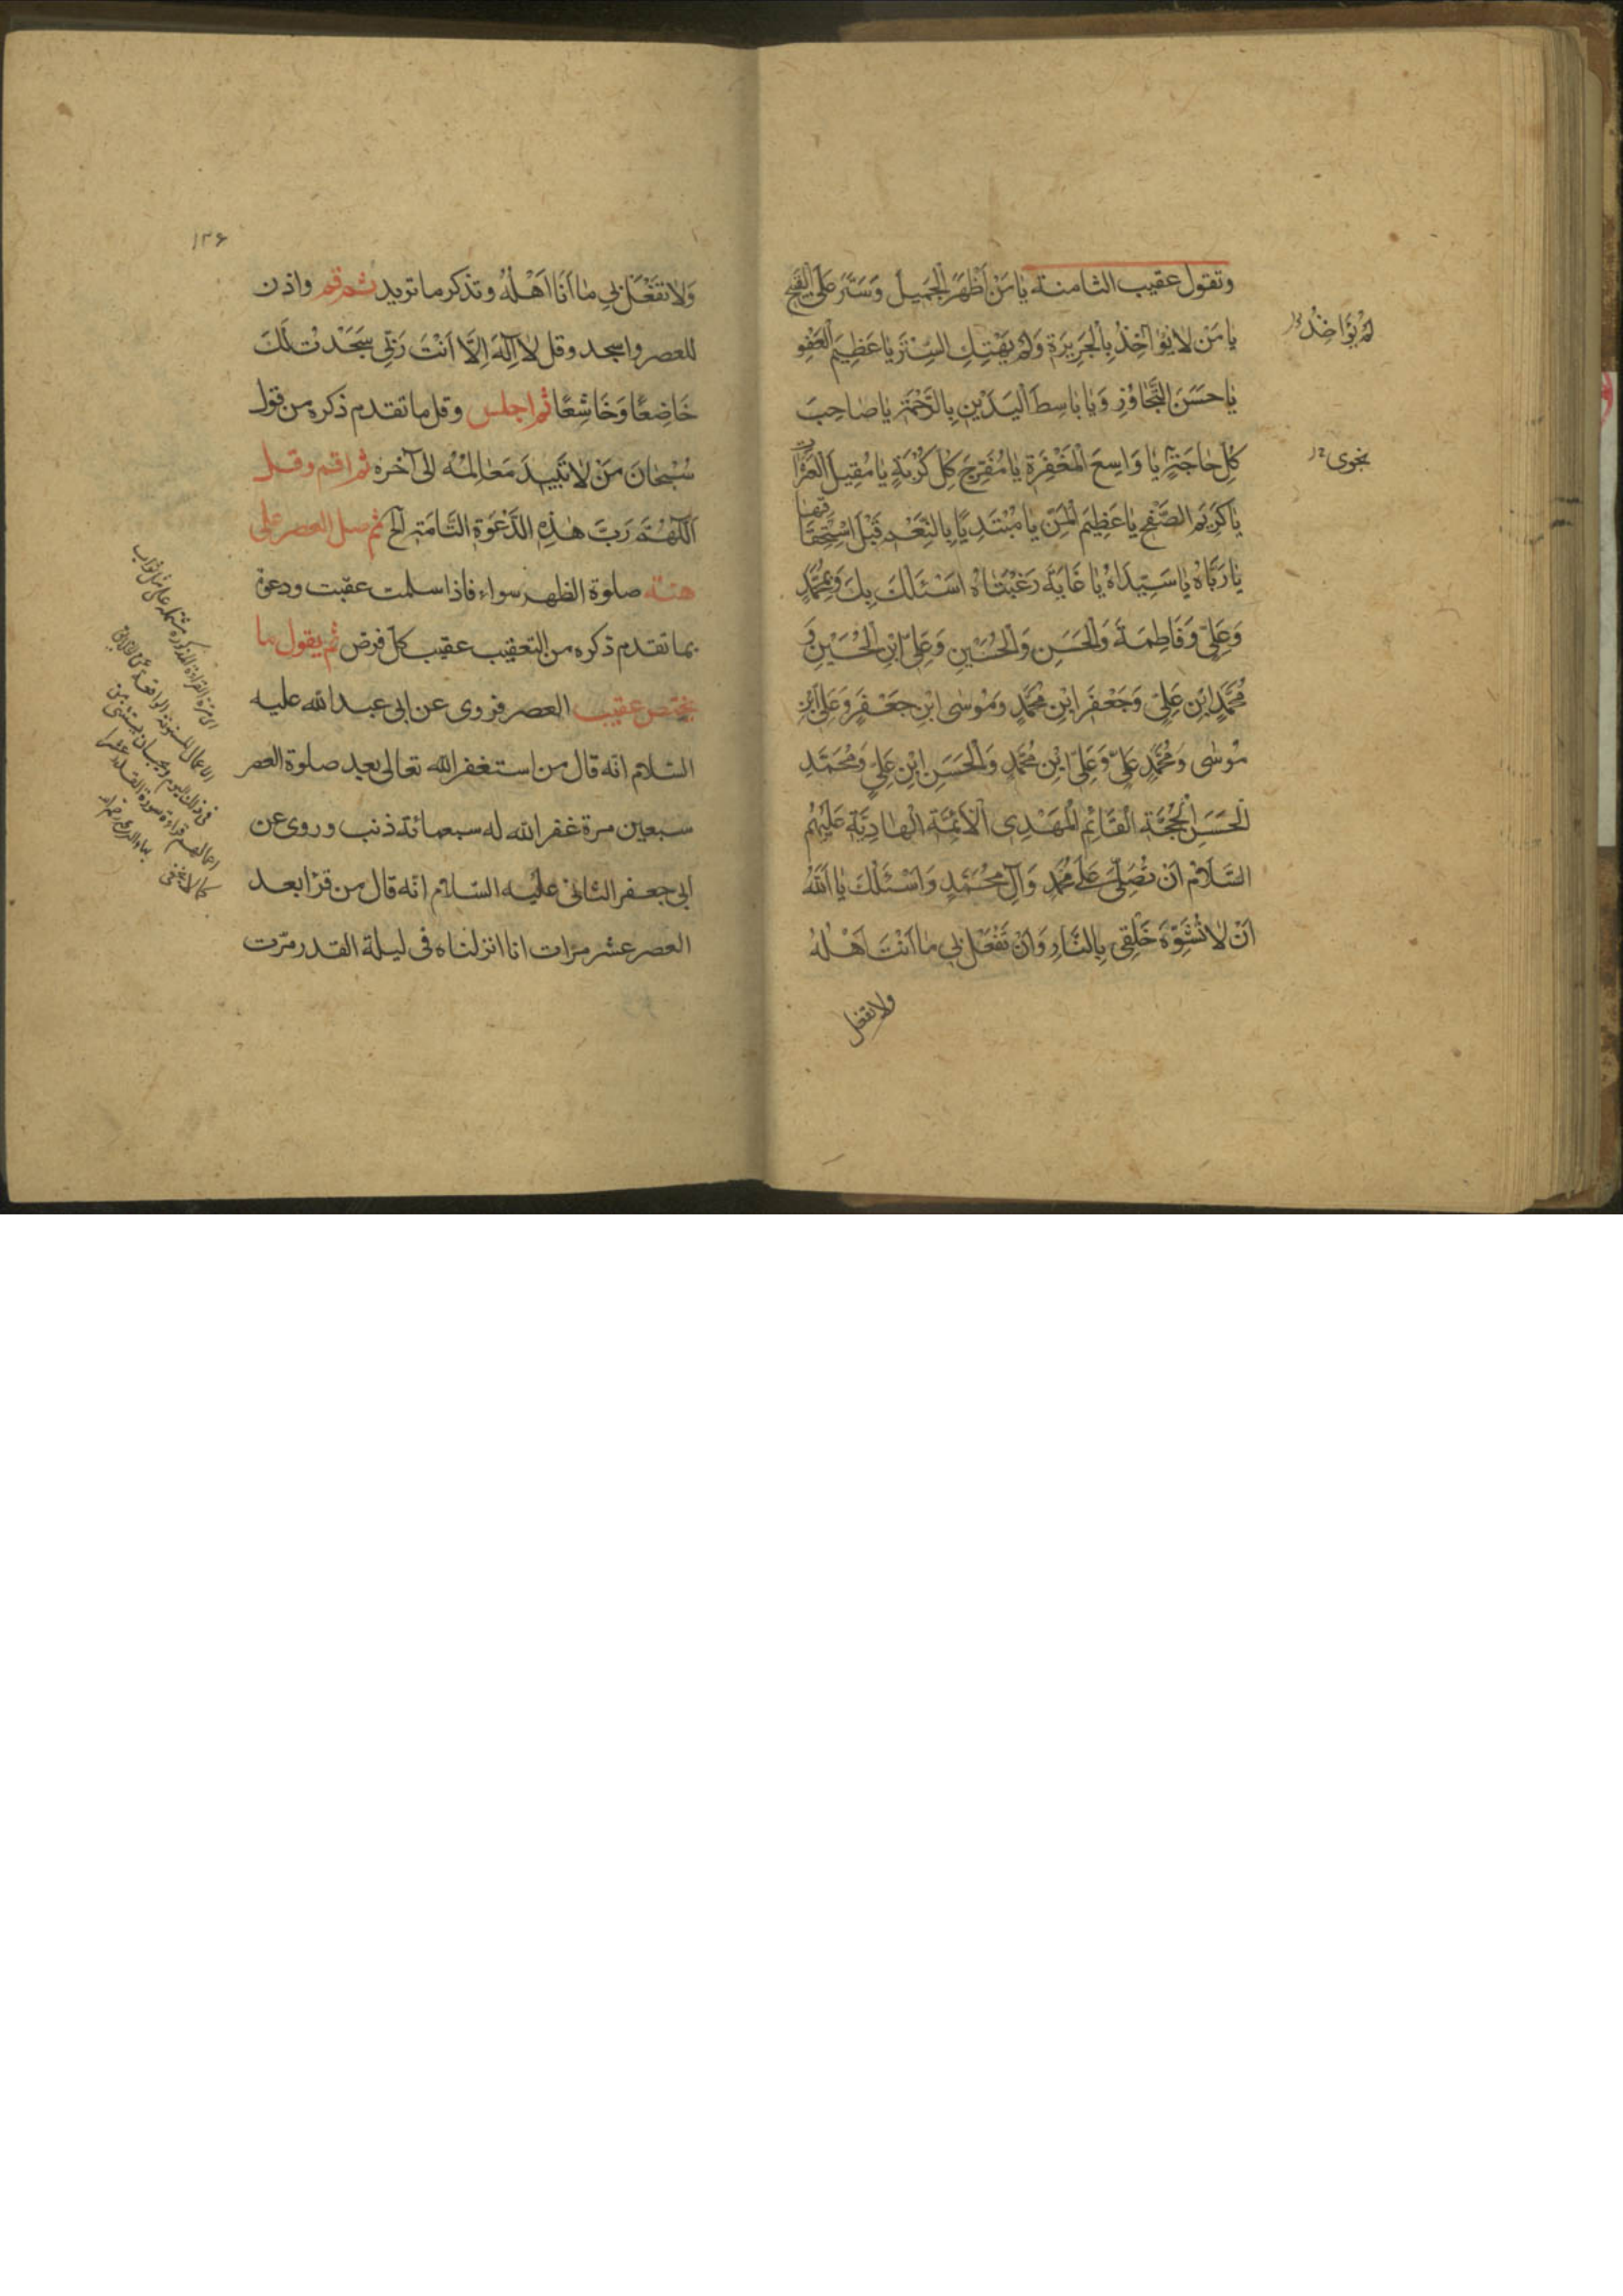 وتقول عقيب الثامنة يَا مَنْ أَظْهَرَ الْجَمِيلَ وَسَتَرَ عَلَيَّ الْقَبِيحَ
يَا مَنْ لَا يُؤَاخِذُ بِالْجَرِيرَةِ وَلَمْ يَهْتِكِ السِّتْرَ يَا عَظِيمَ الْعَفْوِ
لَمْ يُؤَاخِذْ
يَا حَسَنَ التَّجَاوُزِ وَيَا بَاسِطَ الْيَدَيْنِ بِالرَّحْمَةِ يَا صَاحِبَ
كُلِّ حَاجَةٍ يَا وَاسِعَ الْمَغْفِرَةِ يَا مُفَرِّجَ كُلِّ كُرْبَةٍ يَا مُقِيلَ الْعَثَرَاتِ
نجوى
يَا كَرِيمَ الصَّفْحِ يَا عَظِيمَ الْمَنِّ يَا مُبْتَدِيًا بِالنِّعَمِ قَبْلَ اسْتِحْقَاقِهَا
يَا رَبَّاهُ يَا سَيِّدَاهُ يَا غَايَةَ رَغْبَتَاهُ اَسْئَلُكَ بِكَ وَبِمُحَمَّدٍ
وَعَلِيٍّ وَفَاطِمَةَ وَالْحَسَنِ وَالْحُسَيْنِ وَعَلِيِّ ابْنِ الْحُسَيْنِ وَ
مُحَمَّدِ ابْنِ عَلِيٍّ وَجَعْفَرِ ابْنِ مُحَمَّدٍ وَمُوسَى ابْنِ جَعْفَرٍ وَعَلِيِّ ابْنِ
مُوسَى وَمُحَمَّدِ عَلِيٍّ وَعَلِيِّ ابْنِ مُحَمَّدٍ وَالْحَسَنِ ابْنِ عَلِيٍّ وَمُحَمَّدِ
الْحَسَنِ الْحُجَّةِ الْقَائِمِ الْمَهْدِي الْاَئِمَّةِ الْهَادِيَةِ عَلَيْهِمُ
السَّلَامُ اَنْ تُصَلِّيَ عَلَى مُحَمَّدٍ وَآلِ مُحَمَّدٍ وَاَسْئَلُكَ يَا اَللّٰهُ
اَنْ لَا تُشَوِّهَ خَلْقِي بِالنَّارِ وَاَنْ تَفْعَلَ بِي مَا اَنْتَ اَهْلُهُ
ولا تفعل
۱۳۶
وَلَا تَفْعَلْ بِي مَا اَنَا اَهْلُهُ وتذكر ما تريد ثم قم واذن
للعصر واسجد وقل لَا اِلٰهَ اِلَّا اَنْتَ رَبِّي سَجَدْتُ لَكَ
خَاضِعًا وَخَاشِعًا ثم اجلس وقل ما تقدم ذكره من قول
سُبْحَانَ مَنْ لَا تَبِيدُ مَعَالِمُهُ الى آخره ثم اقم وقل
اَللّٰهُمَّ رَبَّ هٰذِهِ الدَّعْوَةِ التَّامَّةِ الخ ثم صل العصر على
هيئة صلوة الظهر سواء فاذا سلمت عقبت ودعوت
بما تقدم ذكره من التعقيب عقيب كل فرض ثم يقول ما
يختص عقيب العصر فروى عن ابى عبد الله عليه
السلام انه قال من استغفر الله تعالى بعد صلوة العصر
سبعين مرة غفر الله له سبعمائة ذنب وروى عن
ابى جعفر الثانى عليه السلام انه قال من قرا بعد
العصر عشر مرات انا انزلناه فى ليلة القدر مرت